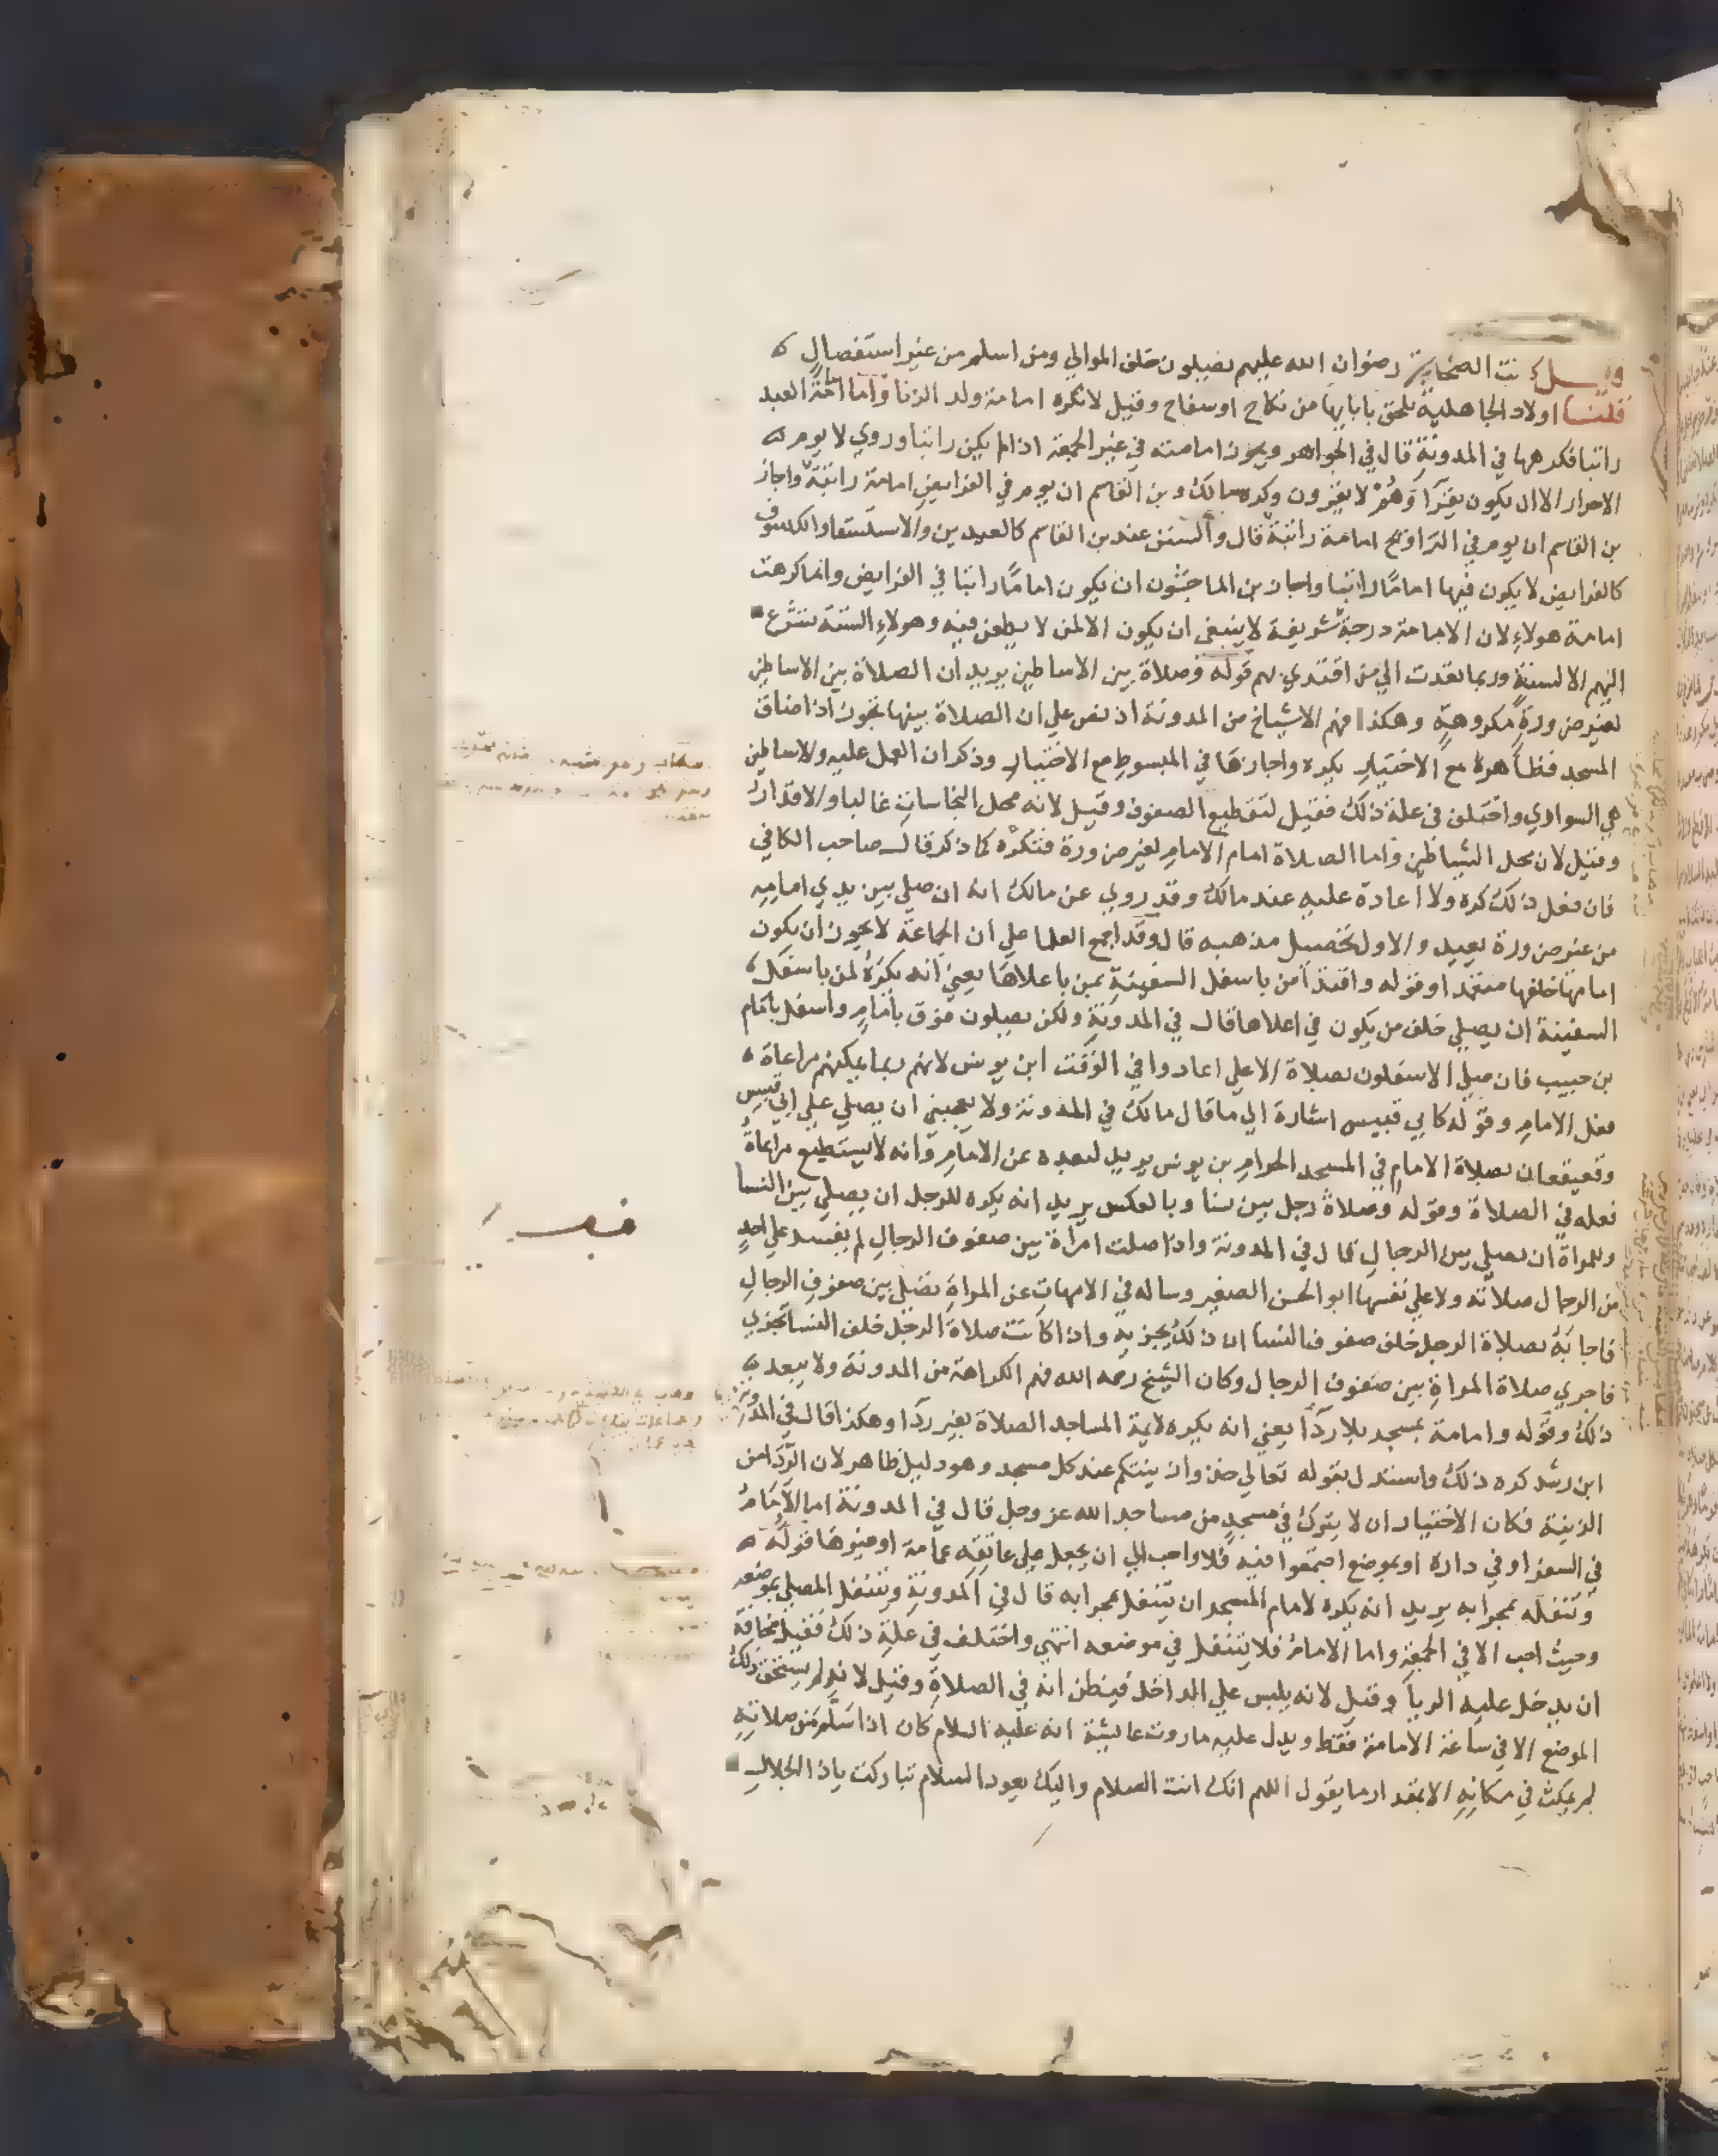 نت الصحابة رضوان الله عليهم يصلون خلف الموالي ومن اسلم من غير استفصال
قلنا اولاد الجاهلية تلحق بابايها من نكاح او سفاح وقيل لا تكره امامة ولد الزنا واما امامة العبد
راتبا فكرهها في المدونة قال في الجواهر ويجوز امامته في غير الجمعة اذا لم يكن راتبا وروي لا يوم
الاحرار الا ان يكون يقرا وهم لا يقرون وكره مالك وبن القاسم ان يوم في الفرايض امامة راتبة واجاز
بن القاسم ان يوم في التراويح امامة راتبة قال والسنن عند بن القاسم كالعيدين والاستسقا والكسوف
كالفرايض لا يكون فيها اماما راتبا واجاز بن الماجشون ان يكون اماما راتبا في الفرايض وانما كرهت
امامة هولاء لان الامامة درجة شريفة لا ينبغي ان يكون الا لمن لا يطعن فيه وهولاء الستة تشرع
اليهم الالسنة وربما تعدت الي من اقتدي بهم قوله وصلاة بين الاساطين يريد ان الصلاة بين الاساطين
لغير ضرورة مكروهة وهكذا فهم الاشياخ من المدونة اذ نص علي ان الصلاة بينها تجوز اذا ضاق
المسجد فظاهره مع الاختيار يكره واجازها في المبسوط مع الاختيار وذكر ان العمل عليه والاساطين
هي السواري واختلف في علة ذلك فقيل لتقطيع الصفوف وقيل لانه محل النجاسات غالبا والاقذار
وقيل لان محل الشياطين واما الصلاة امام الامام لغير ضرورة فتكره كما ذكر قال صاحب الكافي
فان فعل ذلك كره ولا اعادة عليه عند مالك وقد روي عن مالك انه ان صلي بين يدي امامه
من غير ضرورة يعيد والاول تحصيل مذهبه قال وقد اجمع العلما علي ان الجماعة لا يجوز ان يكون
امامها خلفها متعمدا وقوله واقتدا من باسفل السفينة بمن باعلاها يعني انه يكره لمن باسفل
السفينة ان يصلي خلف من يكون في اعلاها قال في المدونة ولكن يصلون فوق بامام واسفل بامام
بن حبيب فان صلي الاسفلون بصلاة الاعلي اعادوا في الوقت ابن يونس لانهم ربما يمكنهم مراعاة
فعل الامام وقوله كابي قبيس اشارة الي ما قال مالك في المدونة ولا يعجبني ان يصلي علي ابي قبيس
وقعيقعان بصلاة الامام في المسجد الحرام بن يونس يريد لبعده عن الامام وانه لا يستطيع مراعاة
فعله في الصلاة وقوله وصلاة رجل بين نسا وبالعكس يريد انه يكره للرجل ان يصلي بين النسا
وللمراة ان تصلي بين الرجال قال في المدونة واذا صلت امراة بين صفوف الرجال لم تفسد علي احد
من الرجال صلاته ولا علي نفسها ابو الحسن الصغير وساله في الامهات عن المراة تصلي بين صفوف الرجال
فاجابه بصلاة الرجل خلف صفوف النسا ان ذلك يجزيه واذا كانت صلاة الرجل خلف النسا تجزي
فاحري صلاة المراة بين صفوف الرجال وكان الشيخ رحمه الله فهم الكراهة من المدونة ولا يبعد
ذلك وقوله وامامة بمسجد بلا ردا يعني انه يكره لايمة المساجد الصلاة بغير ردا وهكذا قال في المدونة
ابن رشد كره ذلك واستدل بقوله تعالي خذوا زينتكم عند كل مسجد وهو دليل ظاهر لان الردا من
الزينة فكان الاختيار ان لا يترك في مسجد من مساجد الله عز وجل قال في المدونة اما الامام
في السفر او في داره او بموضع اجتمعوا فيه فلا واحب الي ان يجعل علي عاتقه عمامة او غيرها قوله
وتنفله بمحرابه يريد انه يكره لامام المسجد ان يتنفل بمحرابه قال في المدونة ويتنفل المصلي بموضعه
وحيث احب الا في الجمعة واما الامام فلا يتنفل في موضعه انتهي واختلف في علة ذلك فقيل مخافة
ان يدخل عليه الريا وقيل لانه يلبس علي الداخل فيظن انه في الصلاة وقيل لانه لم يستحق ذلك
الموضع الا في ساعة الامامة فقط ويدل عليه ما روت عايشة انه عليه السلام كان اذا سلم من صلاته
لم يمكث في مكانه الا بمقدار ما يقول اللهم انك انت السلام واليك يعود السلام تباركت يا ذا الجلال